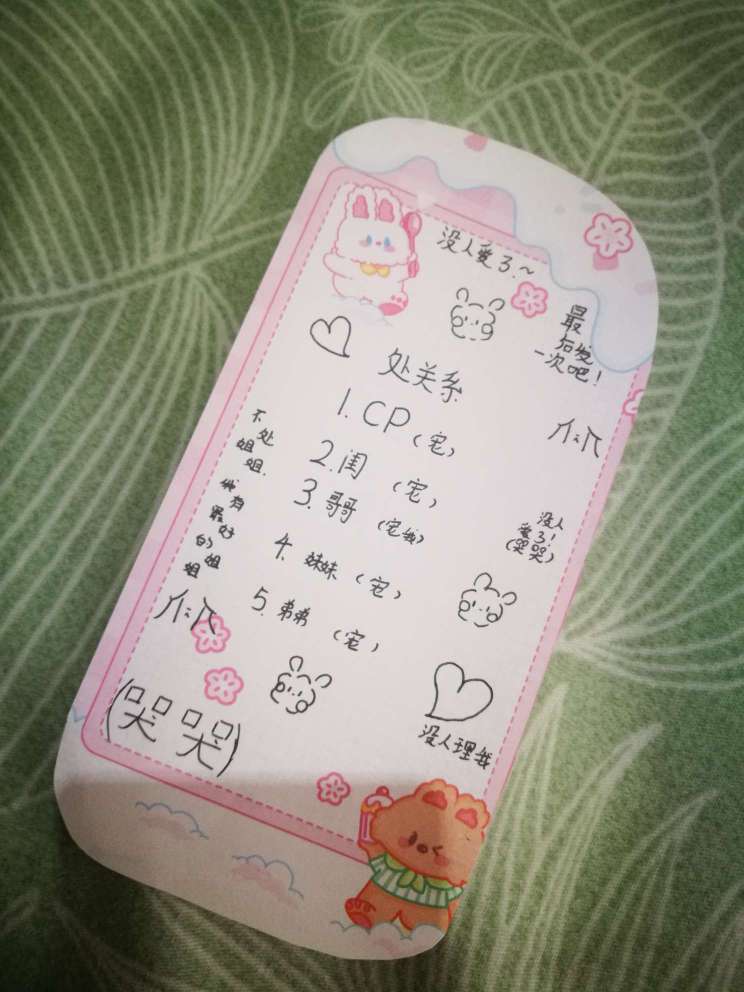 没人爱了~
最
后发
一次吧！
处关系
1. CP（宠）
2. 闺（宠）
3. 哥哥（宠我）
4. 妹妹（宠）
5. 弟弟（宠）
不处
姐姐.
我有
最好
的姐
姐
没人
爱了！
(哭哭)
(哭哭)
没人理我